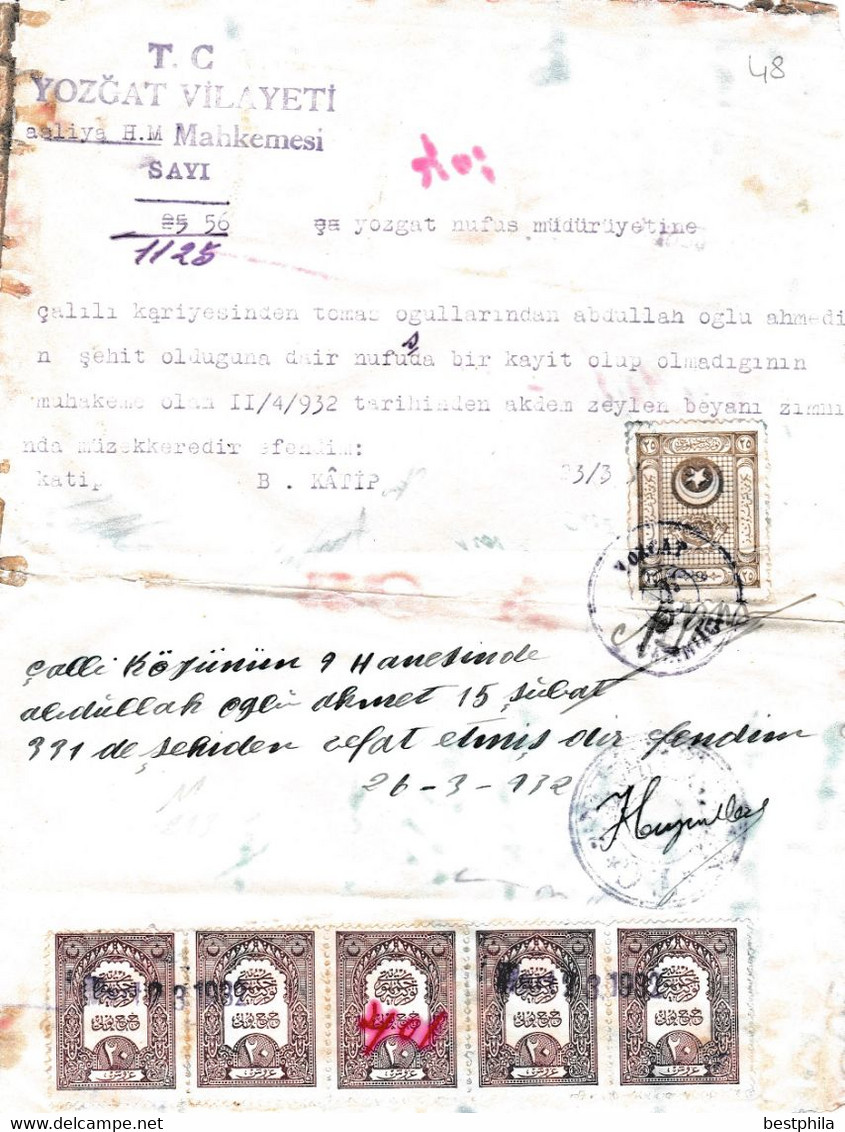 48
T. C
YOZĞAT VİLAYETİ
asliya H.M Mahkemesi
SAYI
25 56 ça yozgat nufus müdürüyetine
1125
çalılı kariyesinden tomas ogullarından abdullah oglu ahmedi
n şehit olduguna dair nufusda bir kayit olup olmadıgının
muhakeme olan II/4/932 tarihinden akdem zeylen beyanı zımnı
nda müzekkeredir efendim:
katip B . KÂTİP 23/3
çalli Köyünün 9 Hanesinde
abdullah oğlu Ahmet 15 şübat
331 de şehiden vefat etmiş dir efendim
26-3-932
٢٥ ٢٥
٢٥
3 1932 3 1932
٢٠ ٢٠ ٢٠ ٢٠ ٢٠
bestphila